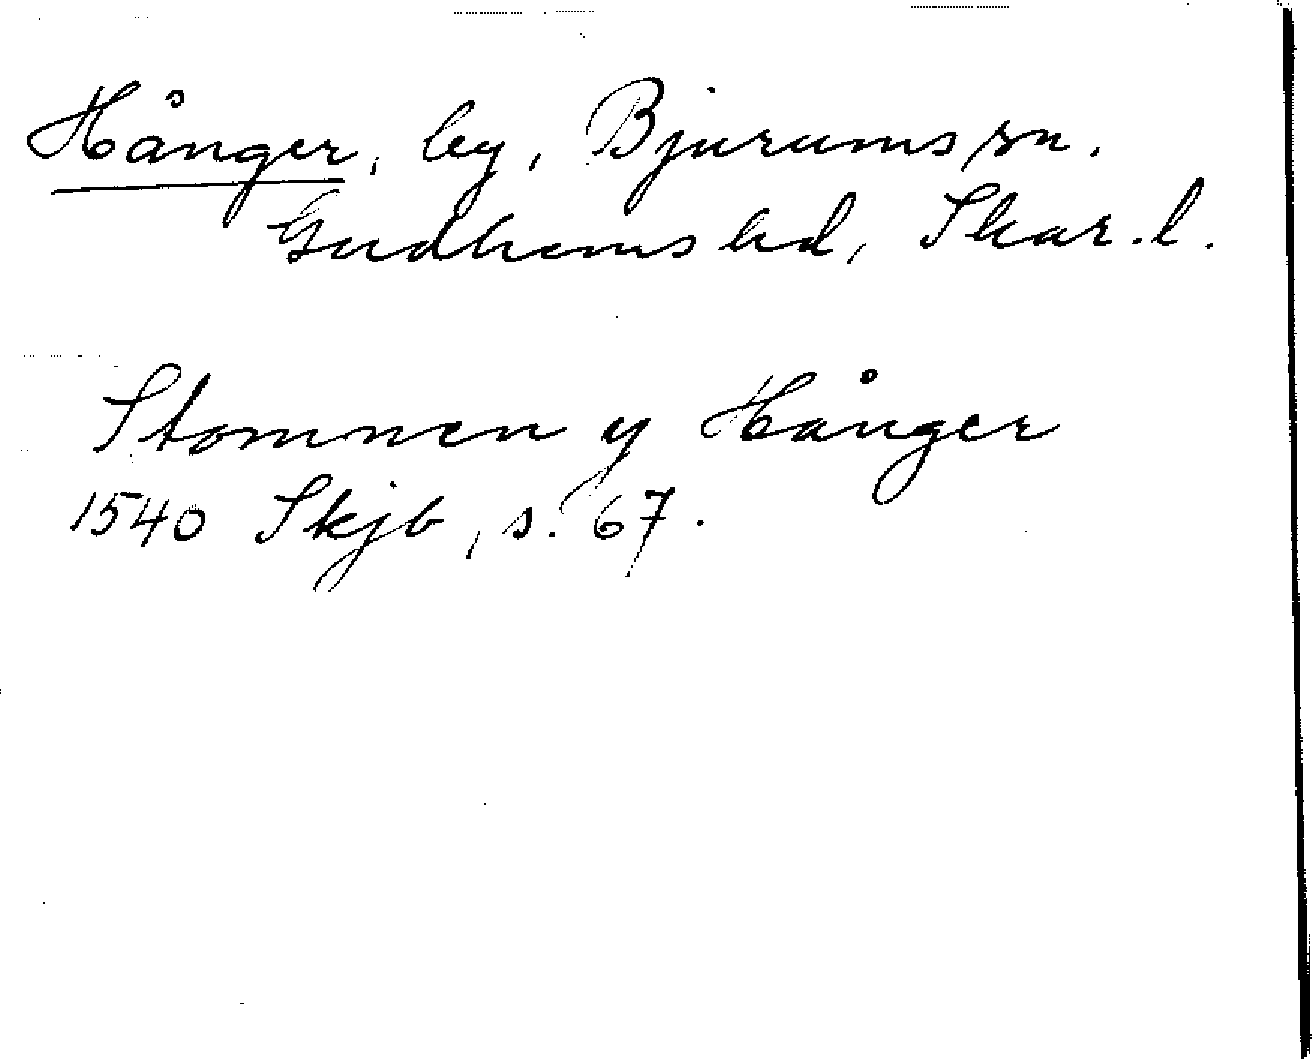 Hånger, by, Bjurums sn.
Gudhems hd, Skar. l.
Stommen y Hånger
1540 Skjb, s. 67.